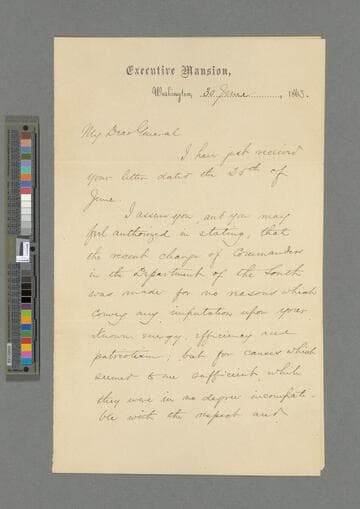 Executive Mansion,
Washington, 30 June, 1863.
My Dear General
I have just received
your letter dated the 25th of
June.
I assure you, and you may
feel authorized in stating, that
the recent change of Commanders
in the Department of the South
was made for no reasons which
convey any imputation upon your
known energy, efficiency and
patriotism; but for causes which
seemed to me sufficient, while
they were in no degree incompati-
ble with the respect and